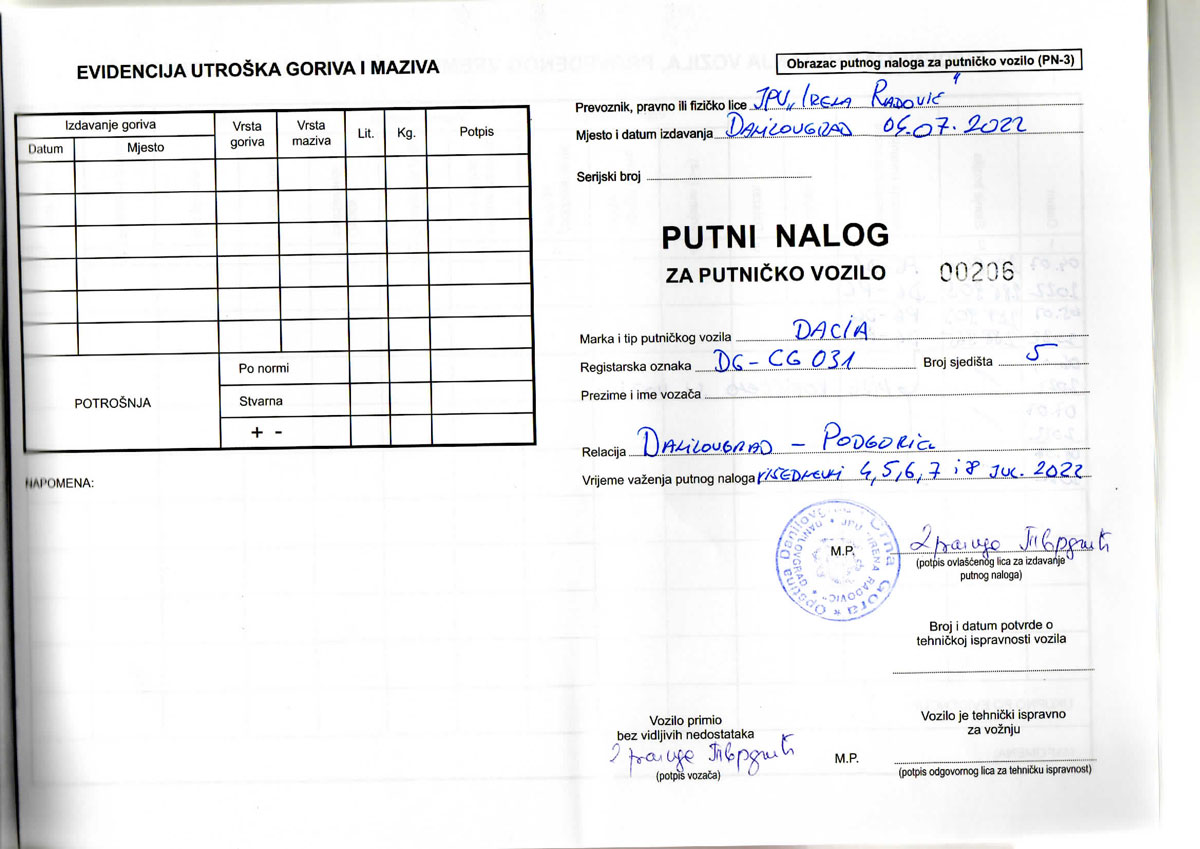 EVIDENCIJA UTROŠKA GORIVA I MAZIVA
Izdavanje goriva
Datum
Mjesto
Vrsta goriva
Vrsta maziva
Lit.
Kg.
Potpis
POTROŠNJA
Po normi
Stvarna
+ -
NAPOMENA:
Obrazac putnog naloga za putničko vozilo (PN-3)
Prevoznik, pravno ili fizičko lice JPU „Irena Radović"
Mjesto i datum izdavanja DANILOVGRAD 04.07.2022
Serijski broj
PUTNI NALOG
ZA PUTNIČKO VOZILO 00206
Marka i tip putničkog vozila DACIA
Registarska oznaka DG-CG 031 Broj sjedišta 5
Prezime i ime vozača
Relacija DANILOVGRAD - PODGORICA
Vrijeme važenja putnog naloga VIŠEDNEVNI 4,5,6,7 i 8 JUL. 2022
Crna Gora * Opština Danilovgrad
JPU "IRENA RADOVIĆ" * DANILOVGRAD
M.P.
(potpis ovlašćenog lica za izdavanje
putnog naloga)
Broj i datum potvrde o
tehničkoj ispravnosti vozila
Vozilo primio
bez vidljivih nedostataka
(potpis vozača)
M.P.
Vozilo je tehnički ispravno
za vožnju
(potpis odgovornog lica za tehničku ispravnost)